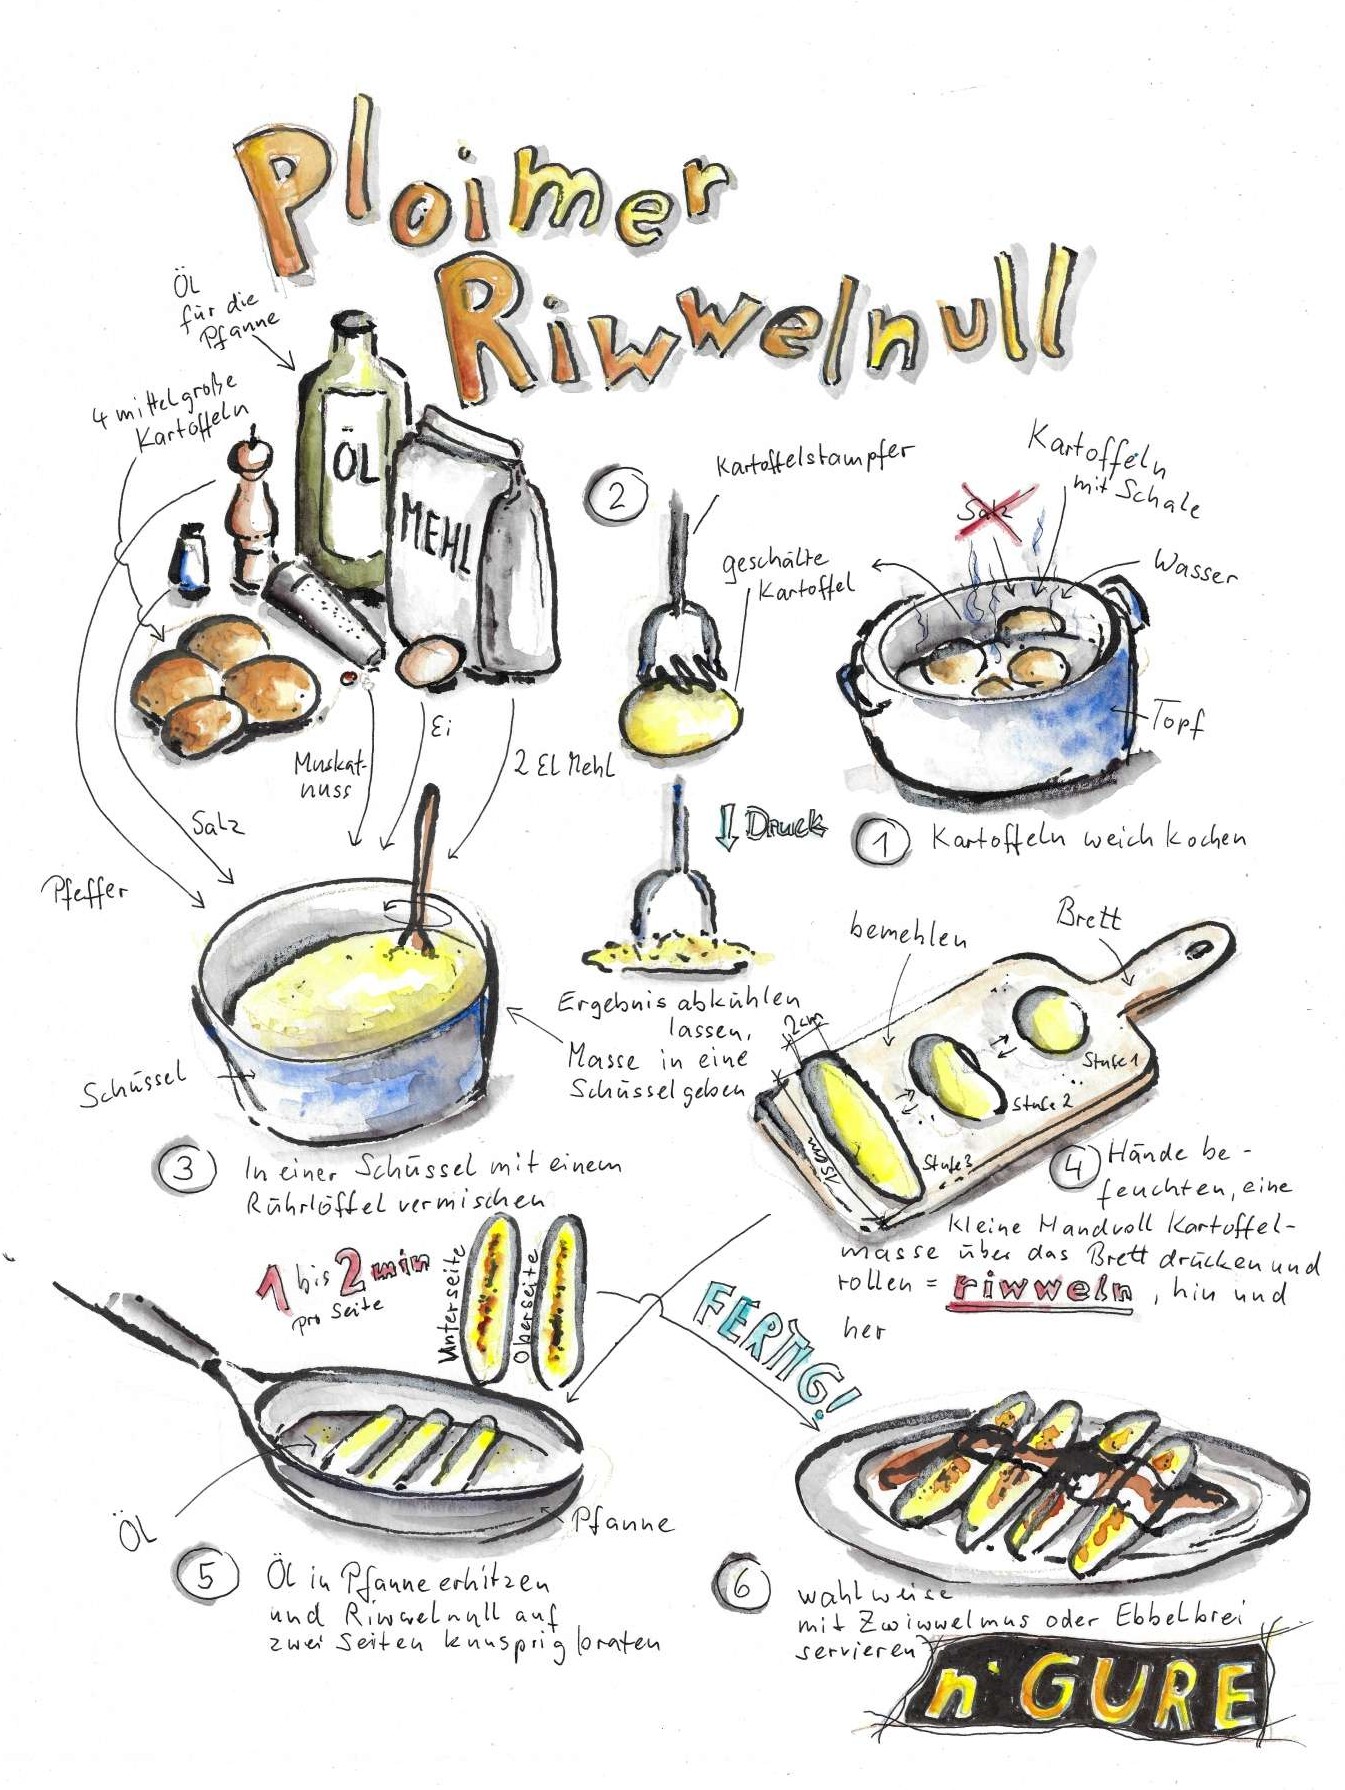 Ploimer
Riwwelnull
Öl
für die
Pfanne
4 mittelgroße
Kartoffeln
ÖL
MEHL
Muskat-
nuss
Ei
2 El Mehl
Salz
Pfeffer
Kartoffeln
mit Schale
Salz
Wasser
Topf
1
Kartoffeln weich kochen
2
Kartoffelstampfer
geschälte
Kartoffel
Druck
Ergebnis abkühlen
lassen,
Masse in eine
Schüssel geben
Schüssel
3
In einer Schüssel mit einem
Rührlöffel vermischen
bemehlen
Brett
2cm
15cm
Stufe 1
Stufe 2
Stufe 3
4
Hände be-
feuchten, eine
kleine Handvoll Kartoffel-
masse über das Brett drücken und
rollen = riwweln, hin und
her
1 bis 2 min
pro Seite
Unterseite
Oberseite
Öl
Pfanne
5
Öl in Pfanne erhitzen
und Riwwelnull auf
zwei Seiten knusprig braten
FERTIG!
6
wahlweise
mit Zwiwwelmus oder Ebbelbrei
servieren
n' GURE